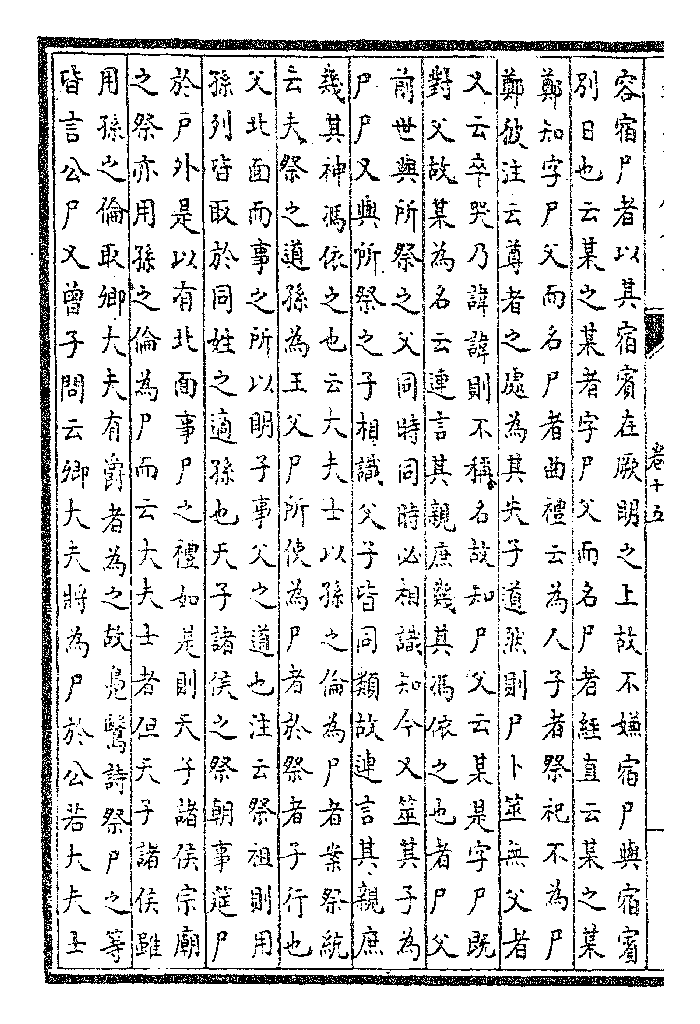 卷十五
容宿尸者以其宿賓在厥明之上故不嫌宿尸與宿賓
別日也云某之某者字尸父而名尸者經直云某之某
鄭知字尸父而名尸者曲禮云為人子者祭祀不為尸
鄭彼注云尊者之處為其失子道然則尸卜筮無父者
又云卒哭乃諱諱則不稱名故知尸父云某是字尸既
對父故某為名云連言其親庶幾其馮依之也者尸父
前世與所祭之父同時同時必相識知今又筮其子為
尸尸又與所祭之子相識父子皆同類故連言其親庶
幾其神馮依之也云大夫士以孫之倫為尸者案祭統
云夫祭之道孫為王父尸所使為尸者於祭者子行也
父北面而事之所以明子事父之道也注云祭祖則用
孫列皆取於同姓之適孫也天子諸侯之祭朝事筵尸
於戶外是以有北面事尸之禮如是則天子諸侯宗廟
之祭亦用孫之倫為尸而云大夫士者但天子諸侯雖
用孫之倫取卿大夫有爵者為之故鳧鷖詩祭尸之等
皆言公尸又曾子問云卿大夫將為尸於公若大夫士